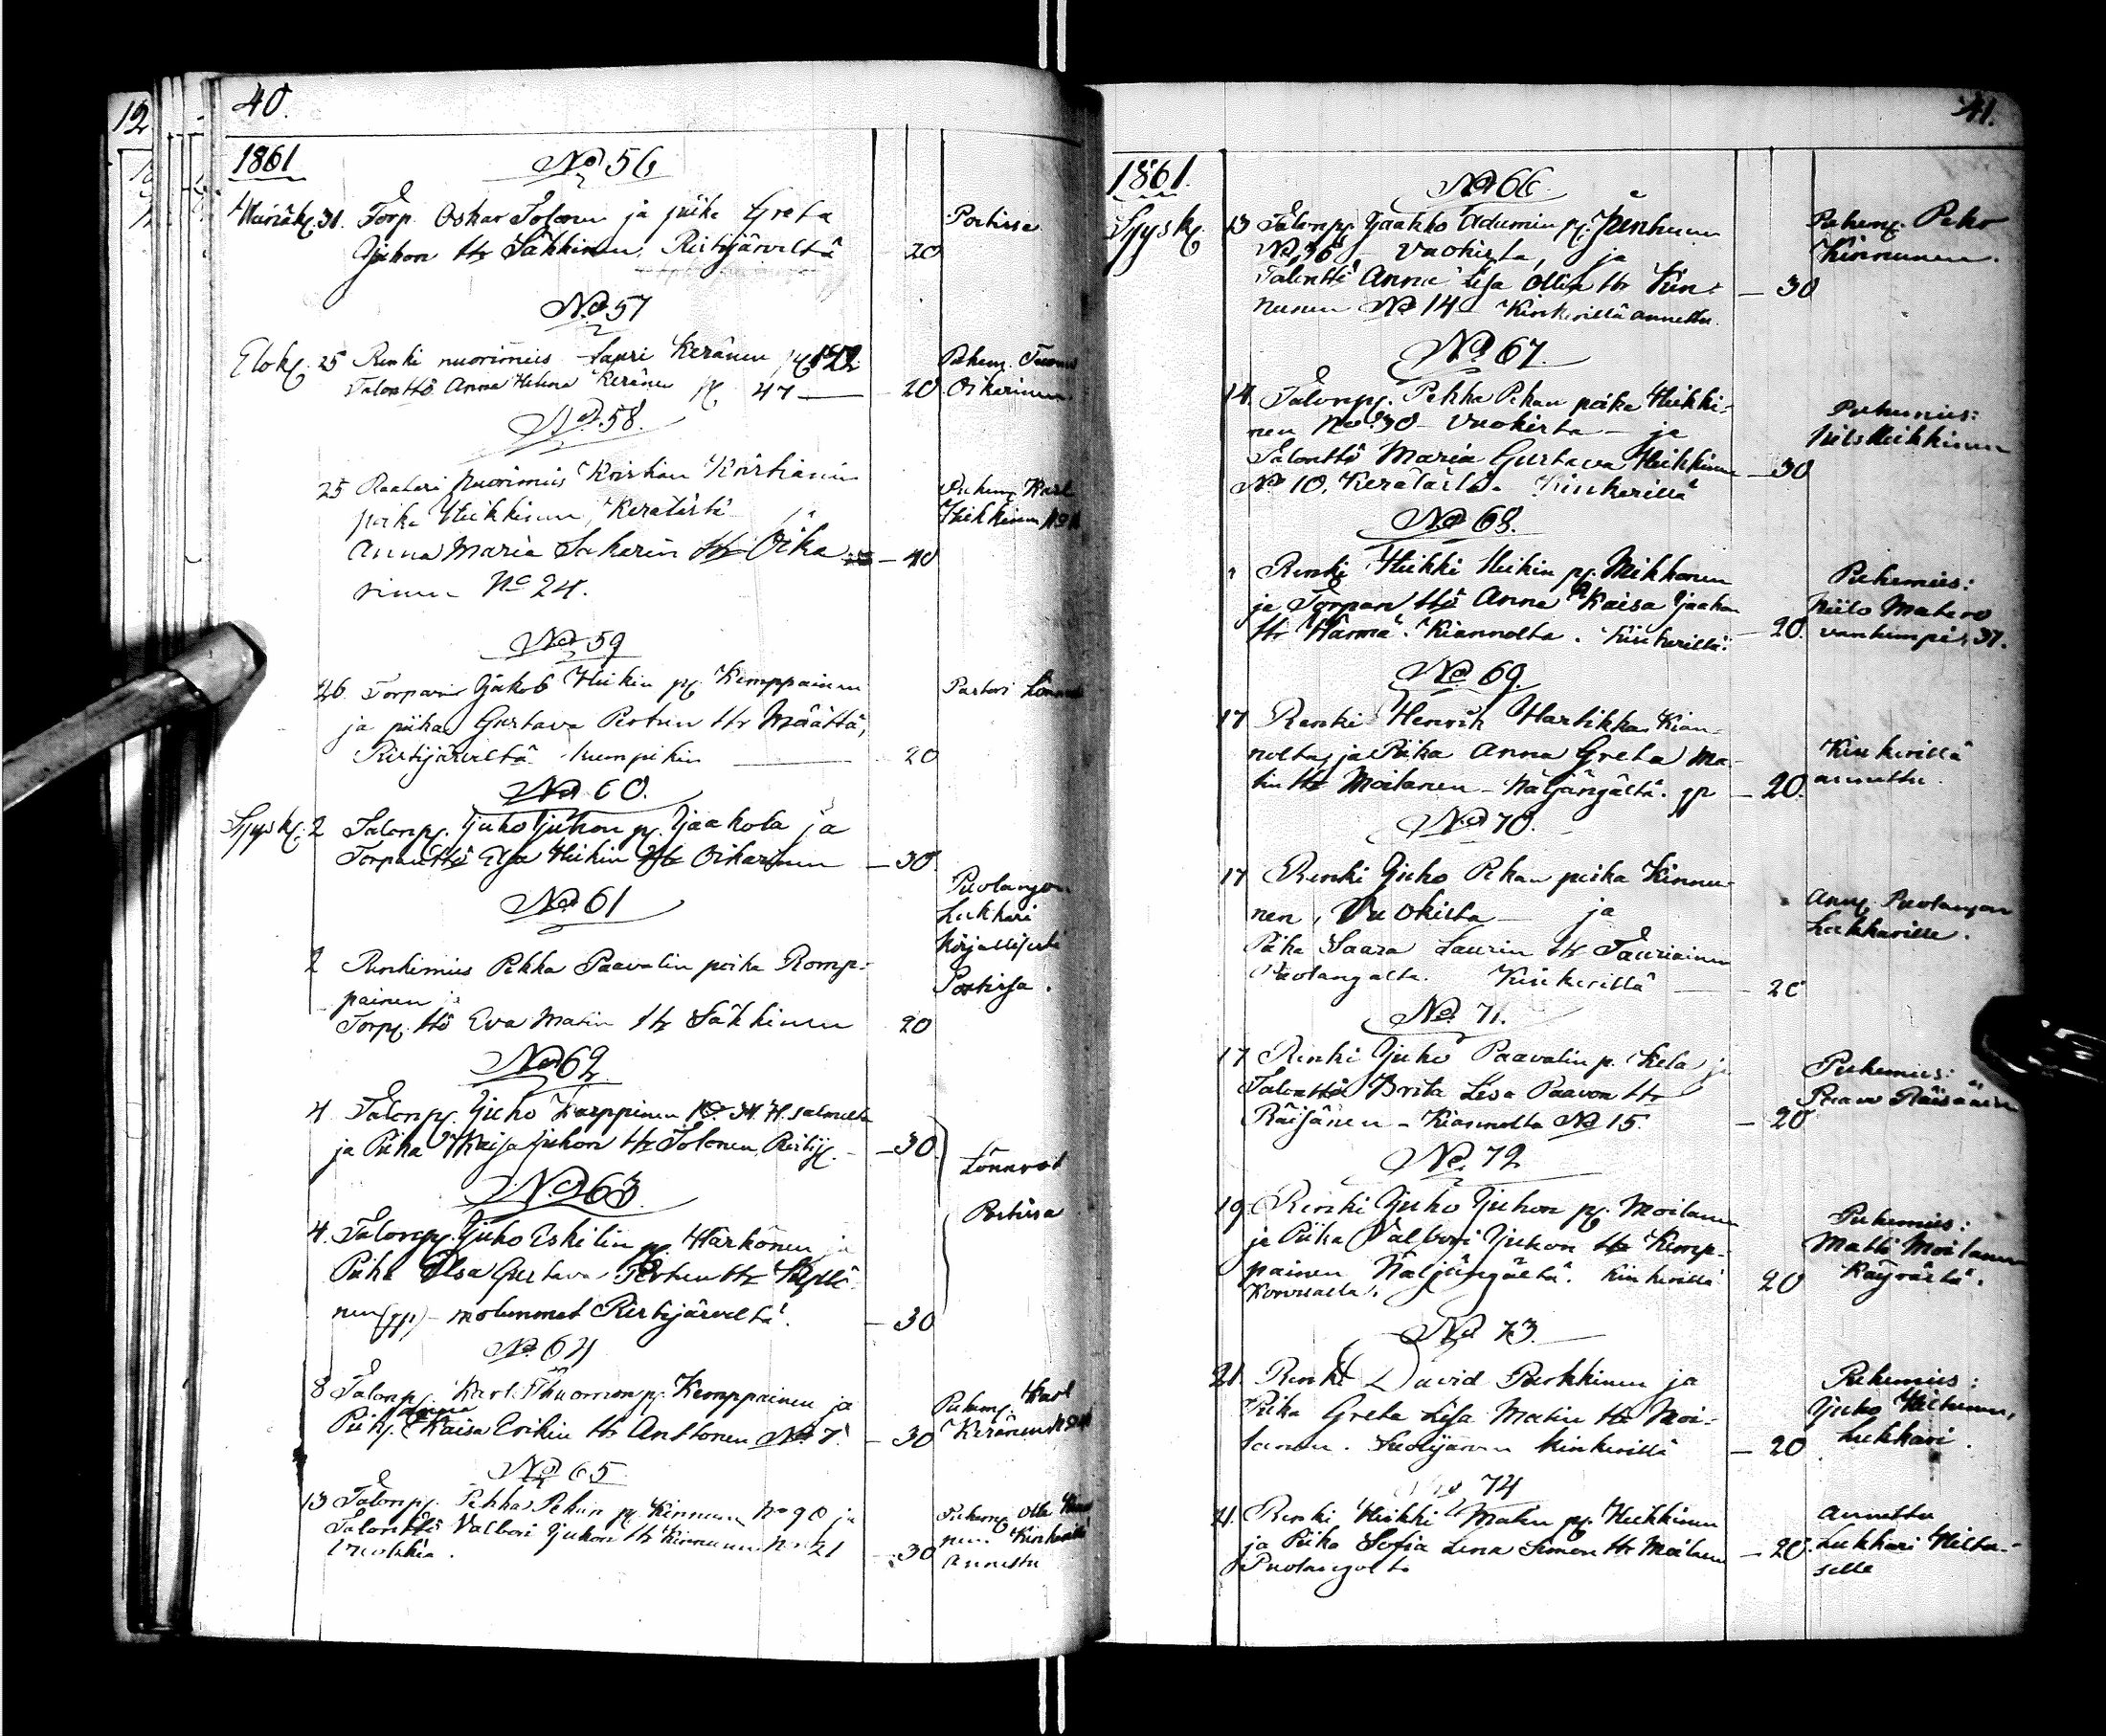 12
40.
1861
No 56
31. Torp. Oskar Tolonen ja piika Greta
Juhon ttr Säkkinen, Ristijärveltä 20
Postissa
No 57
Elok. 25 Renki nuorimies Lauri Keränen
Talontyö Anna Helena Keränen 47 — 20
Puhem. Tuomo
Oikarinen
No 58.
25 Raatari nuorimies Kristian Kristianin
poika Heikkinen, Kerälästä ja
Anna Maria Sakarin ttr Oika
rinen No 24. — 40
Puhem. Karl
Heikkinen
No 59
26 Torpari Jakob Heikin pg. Kemppainen
ja piika Gustava Pertun ttr Määttä,
Ristijärveltä kumpikin — 20
Pastori
No 60.
Syysk. 2 Talonpg. Juho Juhon pg. Jaakola ja
Torpantyö Elsa Heikin ttr Oikarinen — 30
Puolangon
Lukkari
kirjallisesti
No 61
2 Renkimies Pekka Paavalin poika Romp-
painen ja
Torp. työ Eva Matin ttr Säkkinen 20
Postissa.
No 62
4 Talonpg. Juho Karppinen No 34 H.salmelta
ja Piika Kaisa Juhon ttr Tolonen, Ristij. — 30
Lönnrot
No 63.
4. Talonpg. Juho Eskilin pg. Härkönen ja
Piika Elsa Gustava Pertun ttr
nen (gp) — molemmat Ristijärveltä. — 30
Postissa
No 64
8 Talonpg. Karl Thuomon pg. Kemppainen ja
Anna
Piik. Kaisa Erikin ttr Anttonen No 7. — 30
Puhem. Karl
Keränen
No 65
13 Talonpg. Pekka Pekan pg. Kinnunen No 90 ja
Talontyö Valbori Juhon ttr Kinnunen No 21
Vuokkia. — 30
Puhem. Olli
nen. Kinkerillä
annettu
41.
1861.
No 66.
Syysk. 13 Talonpg. Jaakko Adamin pg. Juntunen
No 36 Vuokista, ja
Talontyö Anna Lisa Ollin ttr Kin-
nunen No 14 — Kinkerillä annettu. — 30
Puhem. Pekо
Kinnunen.
No 67.
14. Talonpg. Pekka Pekan poika Heikki-
nen No 30 — Vuokista — ja
Talontyö Maria Gustava Heikkinen — 30
No 10. Kerälästä. Kinkerillä
Puhemies:
Niilo Heikkinen
No 68.
Renki Heikki Heikin pg. Mikkonen
ja Torpan työ Anna Kaisa Jaakon
ttr Härmä. Kiannolta. Kinkerillä. — 20.
Puhemies:
Niilo Matero
vanhempi, 37.
No 69.
17 Renki Henrik Hartikka Kian-
nolta, ja Piika Anna Greta Ma-
tin ttr Moilanen — Näljängältä. gp — 20.
Kinkerillä
annettu.
No 70.
17 Renki Juho Pekan poika Kinnu-
nen, Vuokista — ja
Piika Saara Laurin ttr Tauriainen
Puolangalta. Kinkerillä — 20
Ann. Puolangon
Lukkarille.
No 71.
17 Renki Juho Paavalin p. Kela ja
Talontyö Brita Lisa Paavon ttr
Räisänen — Kiannolta No 15. — 20
Puhemies:
Paavo Räisänen
No 72
19. Renki Juho Juhon pg. Moilanen
ja Piika Valbori Juhon ttr Kemp-
painen Näljängältä. Kinkerillä 20
Korvualla.
Puhemies:
Matti Moilanen
Käyrältä.
No 73.
21. Renki David Purkkinen ja
Piika Greta Lisa Matin ttr Moi-
lanen. Suolijärven kinkerillä — 20
Puhemies:
Juho Hiltunen,
Lukkari.
No 74
21. Renki Heikki Matin pg. Heikkinen
ja Piika Sofia Lena Simon ttr Moilanen — 20.
Puolangolta
Annettu
Lukkari Hiltu-
selle